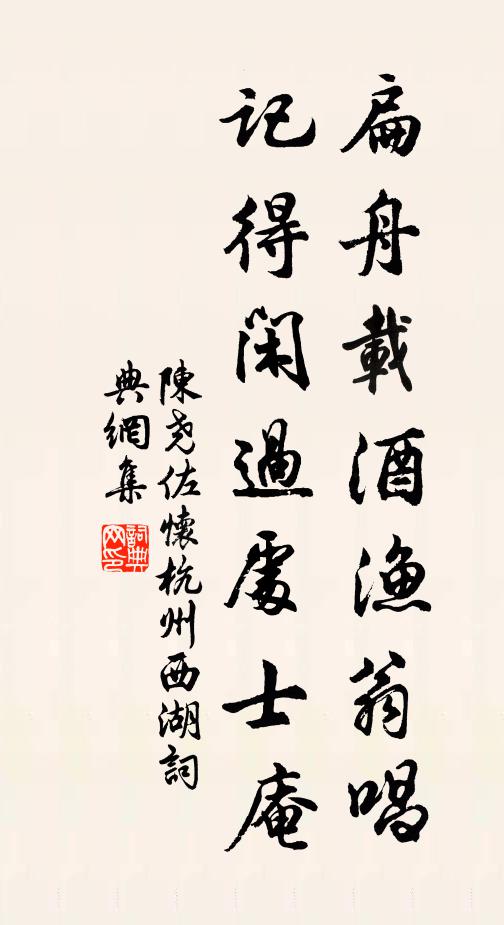 扁舟載酒漁翁唱
記得閑過處士庵
陳堯佐懷杭州西湖詞
典網集
詞典
网印